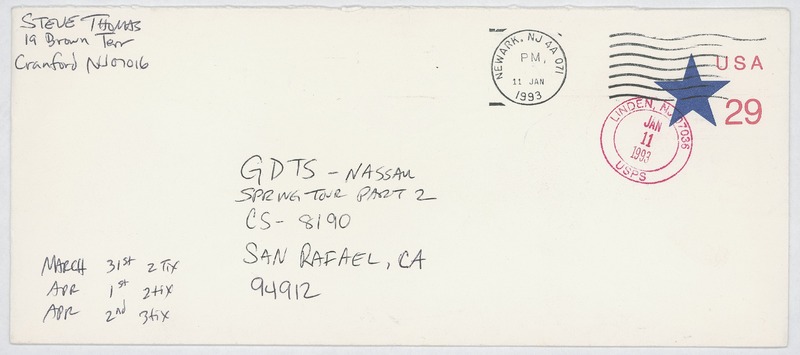 STEVE THOMAS
19 Brown Terr
Cranford NJ 07016
NEWARK, NJ 4A 071
PM,
11 JAN
1993
USA
29
LINDEN, NJ 07036
JAN
11
1993
USPS
GDTS - NASSAU
SPRING TOUR PART 2
CS- 8190
SAN RAFAEL, CA
94912
MARCH 31st 2 TIX
APR 1st 2tix
APR 2nd 3tix